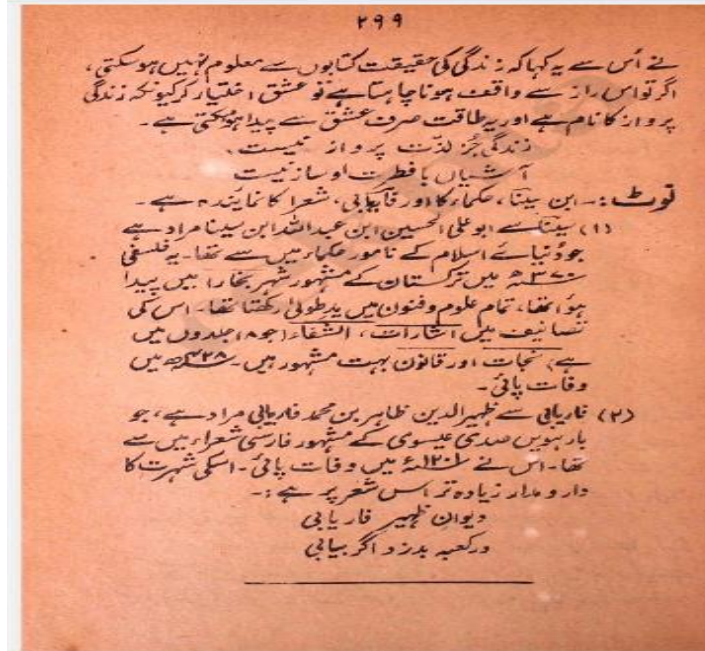 ۲۹۹
نے اُس سے یہ کہا کہ زندگی کی حقیقت کتابوں سے معلوم نہیں ہو سکتی،
اگر تو اس راز سے واقف ہونا چاہتا ہے تو عشق اختیار کر کیونکہ زندگی
پرواز کا نام ہے اور یہ طاقت صرف عشق سے پیدا ہو سکتی ہے۔
زندگی جُز لذّت پرواز نیست،
آشیاں با فطرت او ساز نیست
نوٹ:۔ ابن سینا، حکماء کا اور فاریابی، شعرا کا نمایندہ ہے۔
(۱) سینا سے ابو علی الحسین ابن عبد اللہ ابن سینا مراد ہے
جو دُنیائے اسلام کے نامور حکماء میں سے تھا۔ یہ فلسفی
۳۷۰ھ میں ترکستان کے مشہور شہر بخارا میں پیدا
ہوٴا تھا، تمام علوم و فنون میں یدِ طولیٰ رکھتا تھا۔ اس کی
تصانیف میں اشارات، الشفاء (جو ۱۸ جلدوں میں
ہے) نجات اور قانون بہت مشہور ہیں۔ ۴۲۸ھ میں
وفات پائی۔
(۲) فاریابی سے ظہیر الدین طاہر بن محمد فاریابی مراد ہے، جو
بارہویں صدی عیسوی کے مشہور فارسی شعراء میں سے
تھا۔ اس نے ۱۲۰۱ء میں وفات پائی۔ اسکی شہرت کا
دار و مدار زیادہ تر اس شعر پر ہے:۔
دیوانِ ظہیر فاریابی
در کعبہ بدزد اگر بیابی